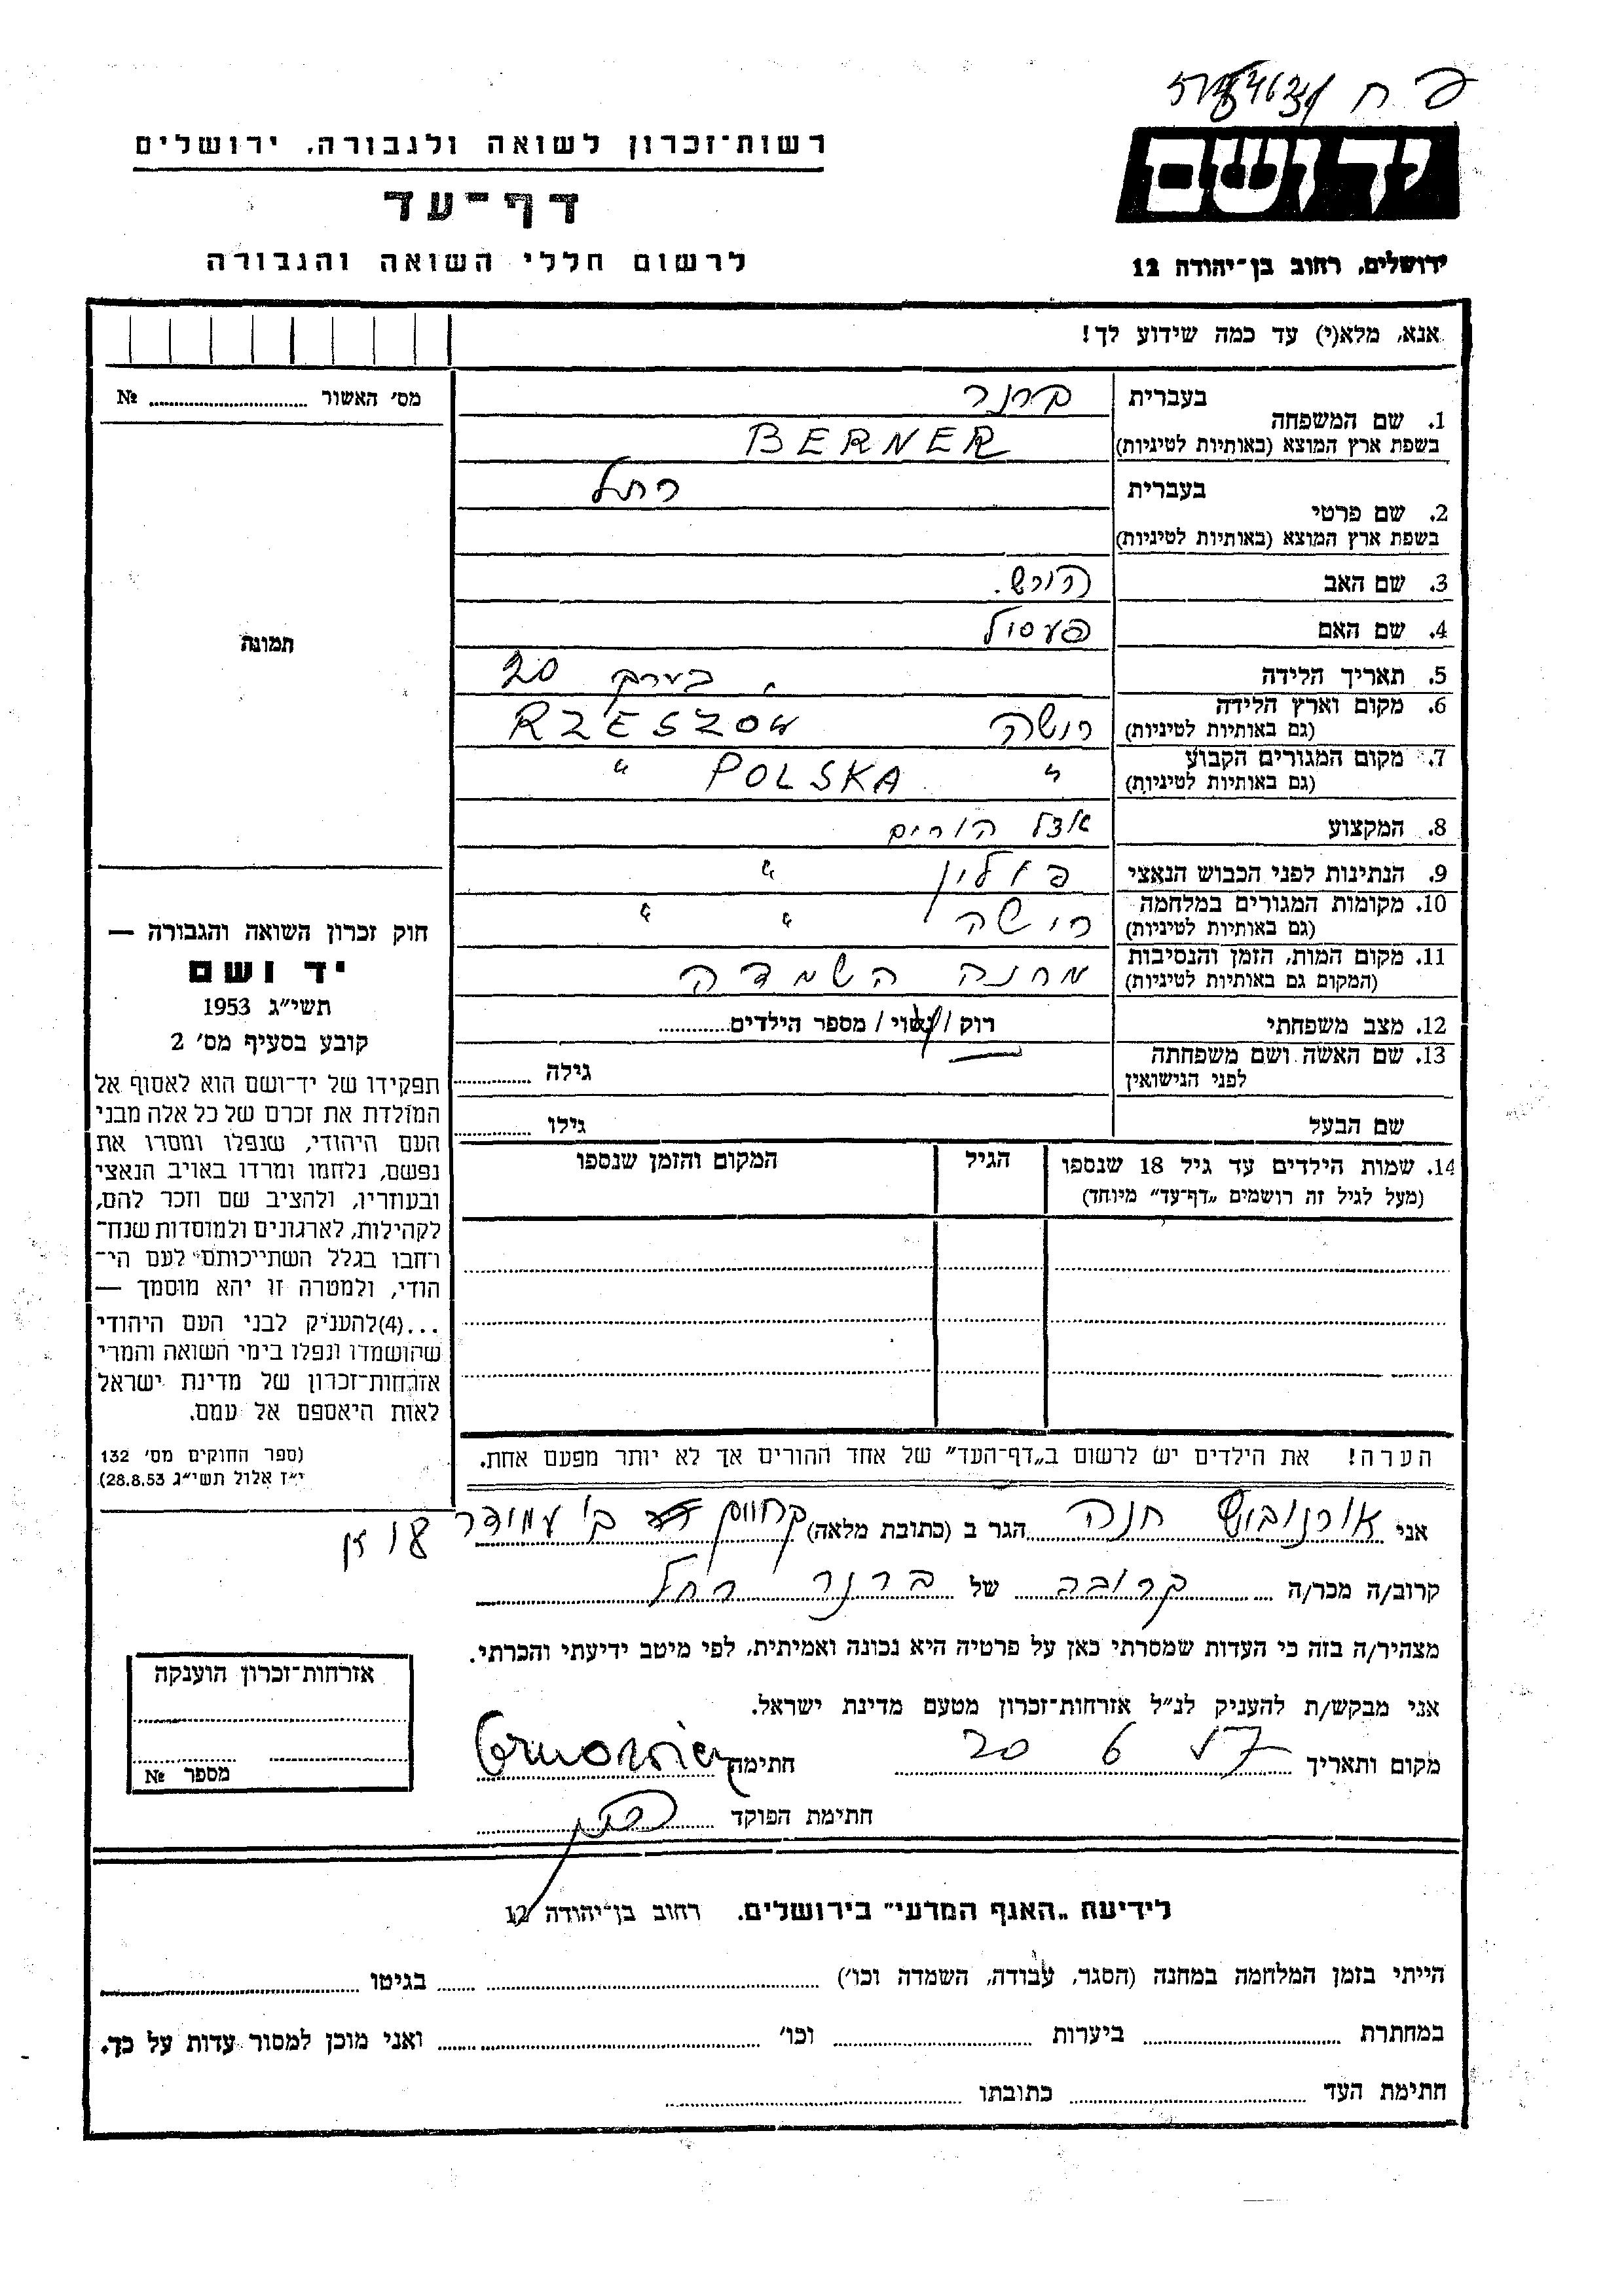 פ ח
רשות־זכרון לשואה ולגבורה, ירושלים
דף־עד
לרשום חללי השואה והגבורה
יד ושם
ירושלים, רחוב בן־יהודה 12
אנא, מלא(י) עד כמה שידוע לך!
מס׳ האשור № 
תמונה
1. שם המשפחה
בעברית ברנר
בשפת ארץ המוצא (באותיות לטיניות) BERNER
2. שם פרטי
בעברית רחל
בשפת ארץ המוצא (באותיות לטיניות)
3. שם האב הירש.
4. שם האם פעסיל
5. תאריך הלידה בערך 20
6. מקום וארץ הלידה (גם באותיות לטיניות) רישה RZESZOW
7. מקום המגורים הקבוע (גם באותיות לטיניות) " POLSKA "
8. המקצוע אצל הורים
9. הנתינות לפני הכבוש הנאצי פולין "
10. מקומות המגורים במלחמה (גם באותיות לטיניות) רישה " "
11. מקום המות, הזמן והנסיבות (המקום גם באותיות לטיניות) מחנה השמדה
12. מצב משפחתי רוק / נשוי / מספר הילדים
13. שם האשה ושם משפחתה לפני הנישואין גילה
שם הבעל גילו
14. שמות הילדים עד גיל 18 שנספו הגיל המקום והזמן שנספו
(מעל לגיל זה רושמים „דף־עד" מיוחד)
חוק זכרון השואה והגבורה —
יד ושם
תשי״ג 1953
קובע בסעיף מס׳ 2
תפקידו של יד־ושם הוא לאסוף אל
המולדת את זכרם של כל אלה מבני
העם היהודי, שנפלו ומסרו את
נפשם, נלחמו ומרדו באויב הנאצי
ובעוזריו, ולהציב שם וזכר להם,
לקהילות, לארגונים ולמוסדות שנח־
רחבו בגלל השתייכותם לעם הי־
הודי, ולמטרה זו יהא מוסמך —
...(4)להעניק לבני העם היהודי
שהושמדו ונפלו בימי השואה והמרי
אזרחות־זכרון של מדינת ישראל
לאות היאספם אל עמם.
(ספר החוקים מס׳ 132
י״ז אלול תשי״ג 28.8.53)
הערה! את הילדים יש לרשום ב„דף־העד" של אחד ההורים אך לא יותר מפעם אחת.
אני חנה הגר ב (כתובת מלאה) עמידר
קרוב/ה מכר/ה קרובה של ברנר רחל
מצהיר/ה בזה כי העדות שמסרתי כאן על פרטיה היא נכונה ואמיתית, לפי מיטב ידיעתי והכרתי.
אני מבקש/ת להעניק לנ״ל אזרחות־זכרון מטעם מדינת ישראל.
מקום ותאריך 20 6 57 חתימה
חתימת הפוקד
אזרחות־זכרון הוענקה
מספר №
לידיעת „האגף המדעי" בירושלים. רחוב בן־יהודה 12
הייתי בזמן המלחמה במחנה (הסגר, עבודה, השמדה וכו׳) בגיטו
במחתרת ביערות וכו׳ ואני מוכן למסור עדות על כך.
חתימת העד כתובתו